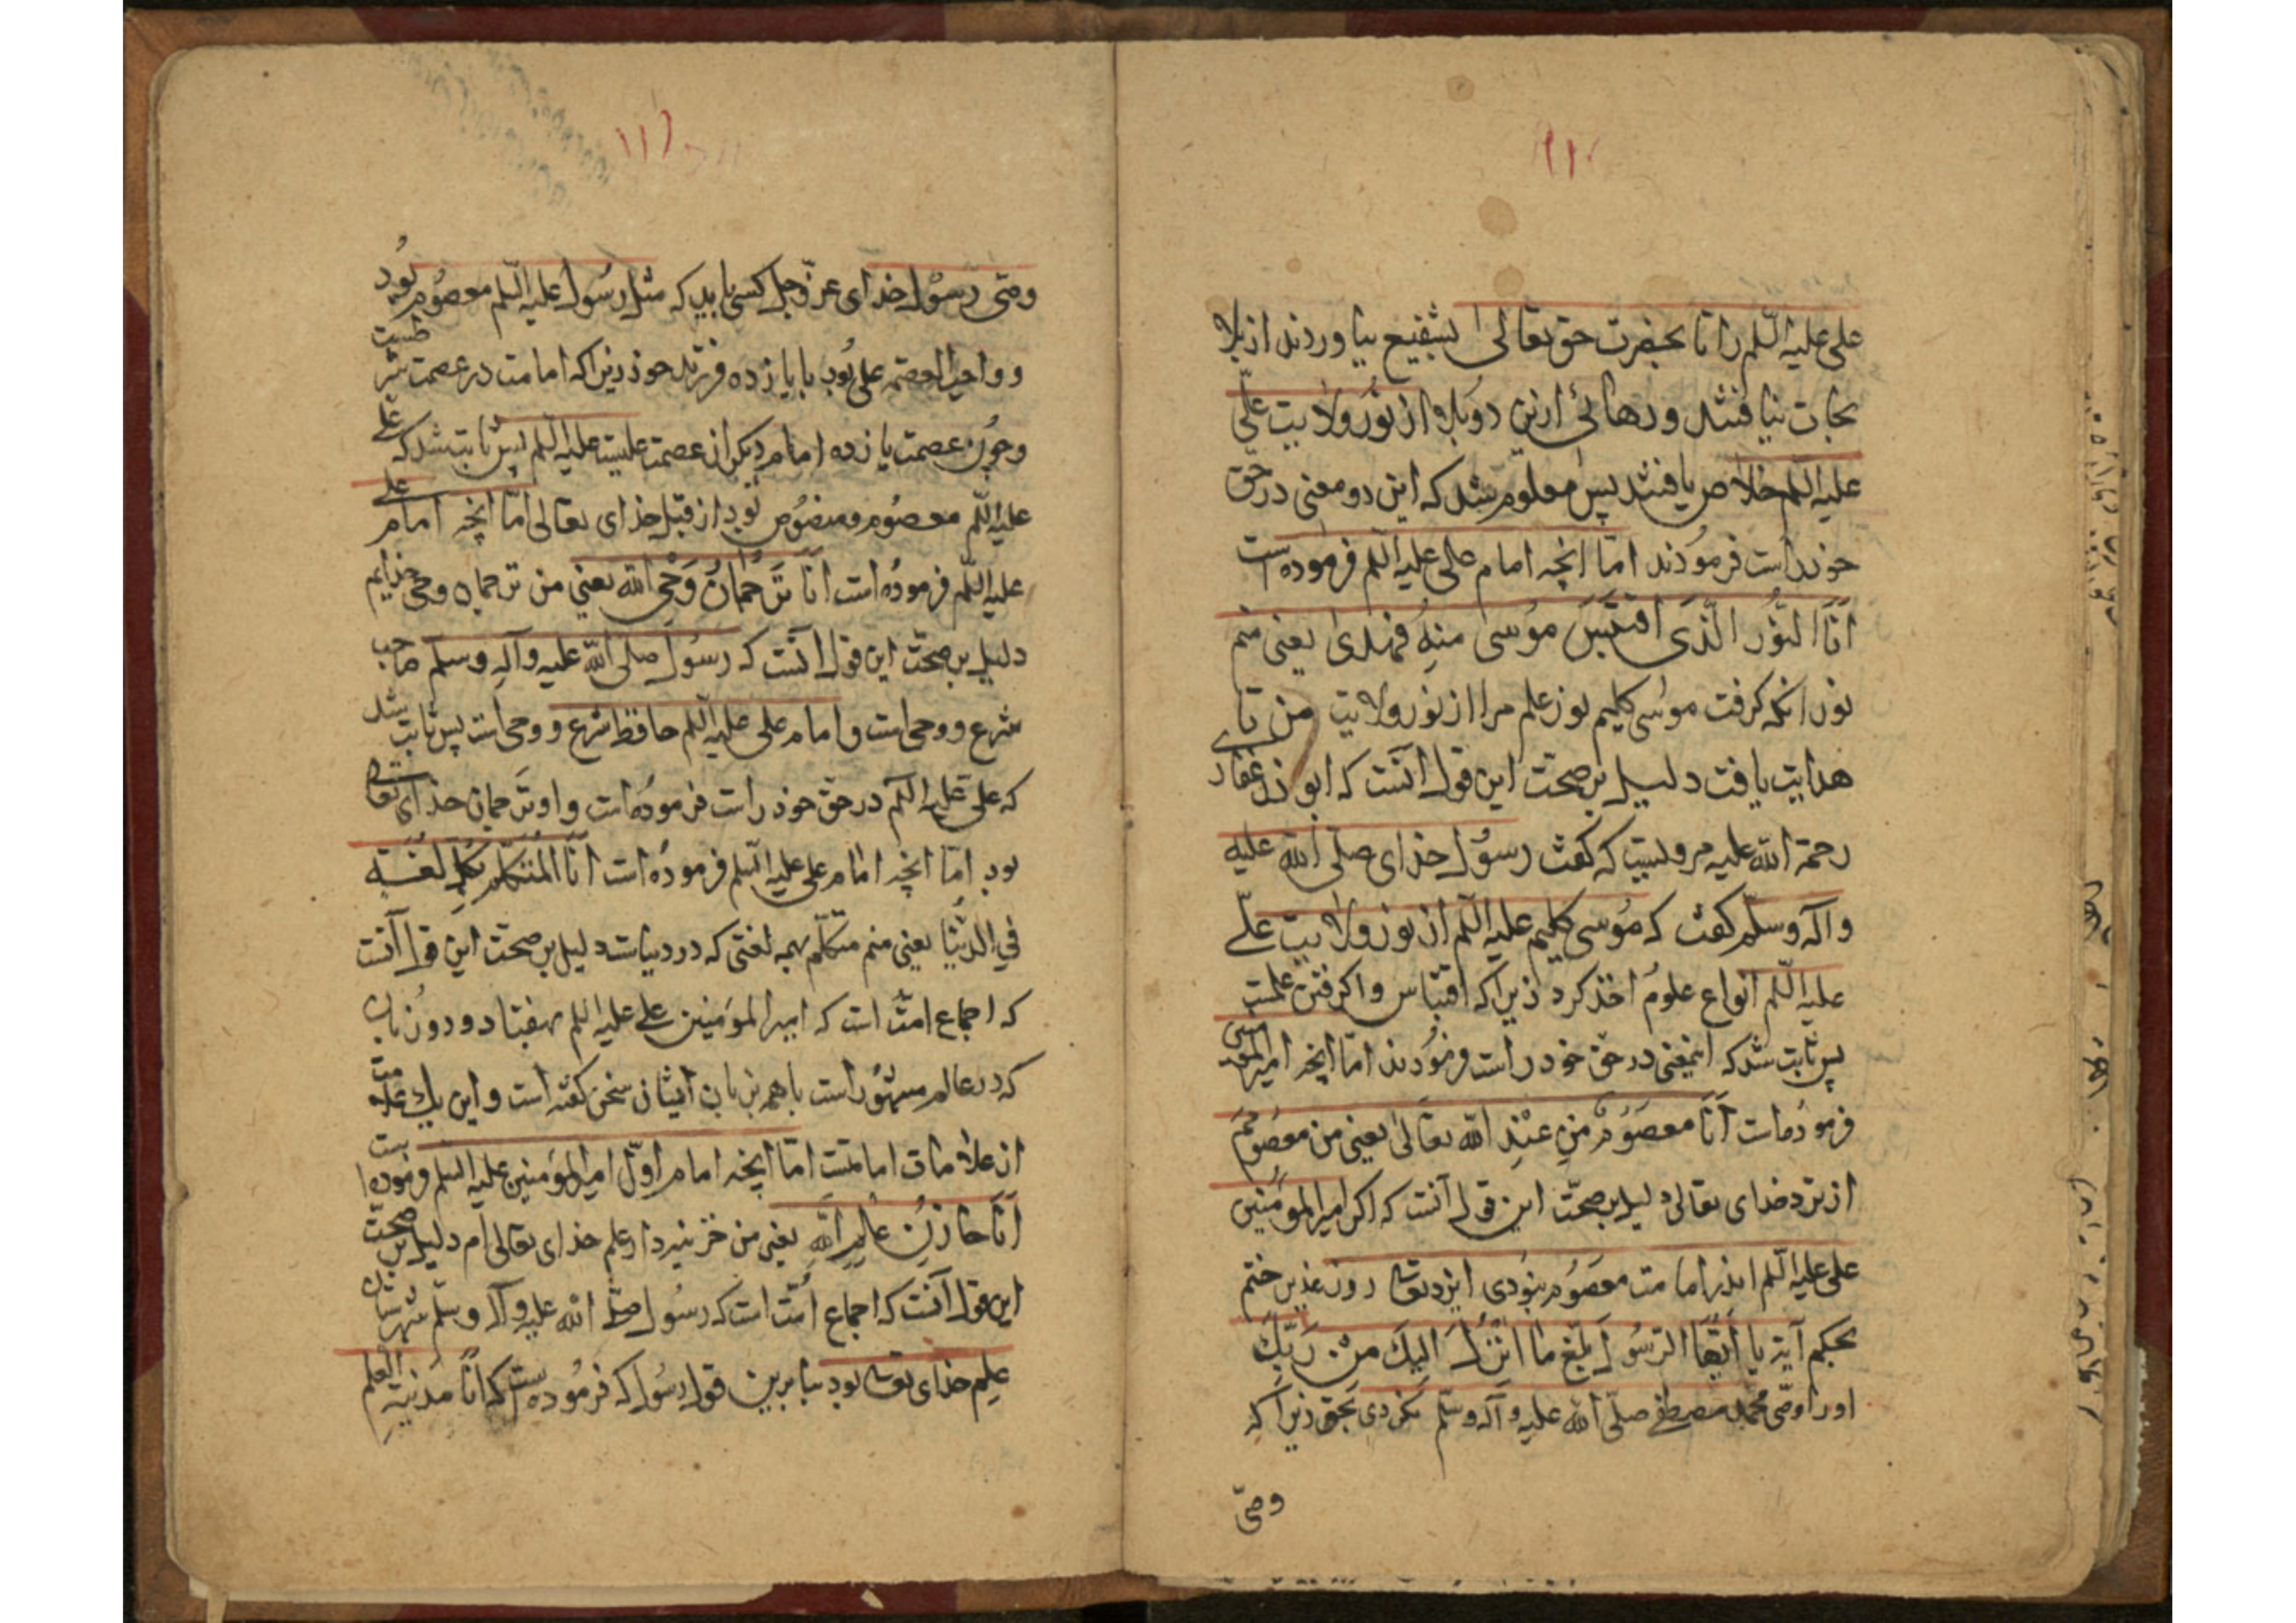 ١١٠
علی علیه السلم را تا بحضرت حق تعالی بشفیع نیاوردند از بلا
نجات نیافتند و رهائی ازین دو بلا از نور ولایت علّی
علیه السلم خلاص یافتند پس معلوم شد که این دو معنی در حق
خود راست فرمودند امّا انچه امام علی علیه السلم فرموده است
اَنَا النُّور الَّذی اقتَبَسَ مُوسی مِنهُ فَهُدیٰ یعنی منم
نور انکه گرفت موسی کلیم نور علم مرا از نور ولایت من تا
هدایت یافت دلیل بر صحت این قول آنست که ابو ذر غفاری
رحمة الله علیه مرویست که گفت رسول خدای صلّی الله علیه
و آله و سلّم گفت که مُوسی کلیم علیه السّلم از نور ولایت علّے
علیه السّلم انواع علوم اخذ کرد زیرا که اقتباس واگرفتن علمست
پس ثابت شد که اینمعنی در حق خود راست فرمودند امّا انچه امیر المؤمنین
فرموده است اَنَا معصَوُمٌ مِنِ عنْدِ الله تعالیٰ یعنی من معصومم
از نزد خدای تعالی دلیل بر صحّت این قول آنست که اگر امیر المؤمنین
علی علیه السّلم اندر امامت معصوم نبودی ایزد تعالی روز غدیر ختم
بحکم آیة یا اَیُّها الرّسُول بَلّغ ما اُنزِلَ الیكَ مِن رَبِّكَ
او را وصّی محمّد مصطفی صلّی الله علیه و آله وسلّم نکردی بحق زیرا که
وصّی
١١١
وصّی رسُول خدای عزّ و جل کسی باید که مثل رسُول علیه السّلم معصوم بُود
و واجب العصمة علی بُود با یازده فرزند خود زیرا که امامت در عصمت شرطست
و چون عصمت یازده امام دیگر از عصمت علیست علیه السّلم پس ثابت شد که علے
علیه السّلم معصُوم و منصُوص بُود از قبل خدای تعالی امّا انچه امام علے
علیه السّلم فرموده است اَنَا تَرجُمانُ وَحْیِ الله یعنی من ترجمان وحی خدایم
دلیل بر صحّت این قول آنست که رسُول صلی الله علیه و آله وسلم صاحب
شرع و وحی است و امام علی علیه السّلم حافظ شرع و وحی است پس ثابت شد
که علی علیه السّلم در حق خود راست فرموده است و او ترجمان خدای تعالی
بود امّا انچه امام علی علیه السّلم فرموده است اَنَا المُتَکَلِّم بِکُلِّ لُغَةٍ
فی الدُّنیا یعنی منم متکلّم بهمه لغتی که در دنیاست دلیل بر صحّت این قول آنست
که اجماع امّت است که امیر المؤمنین علے علیه السّلم بهفتاد و دو زبان
که در عالم مشهُور است با همه بزبان ایشان سخن گفته است و این یك علامت
از علامات امامتست امّا انچه امام اوّل امیر المؤمنین علیه السّلم فرموده است
اَنَا خازِنُ عِلمِ اللّه یعنی من خزینه دار علم خدای تعالی ام دلیل بر صحّت
این قول آنست که اجماع اُمّت است که رسُول صلّی الله علیه و آله و سلّم شهرستان
علم خدای تعالی بود بنا برین قول رسُول که فرموده است که اَنَا مَدِینَة العِلم